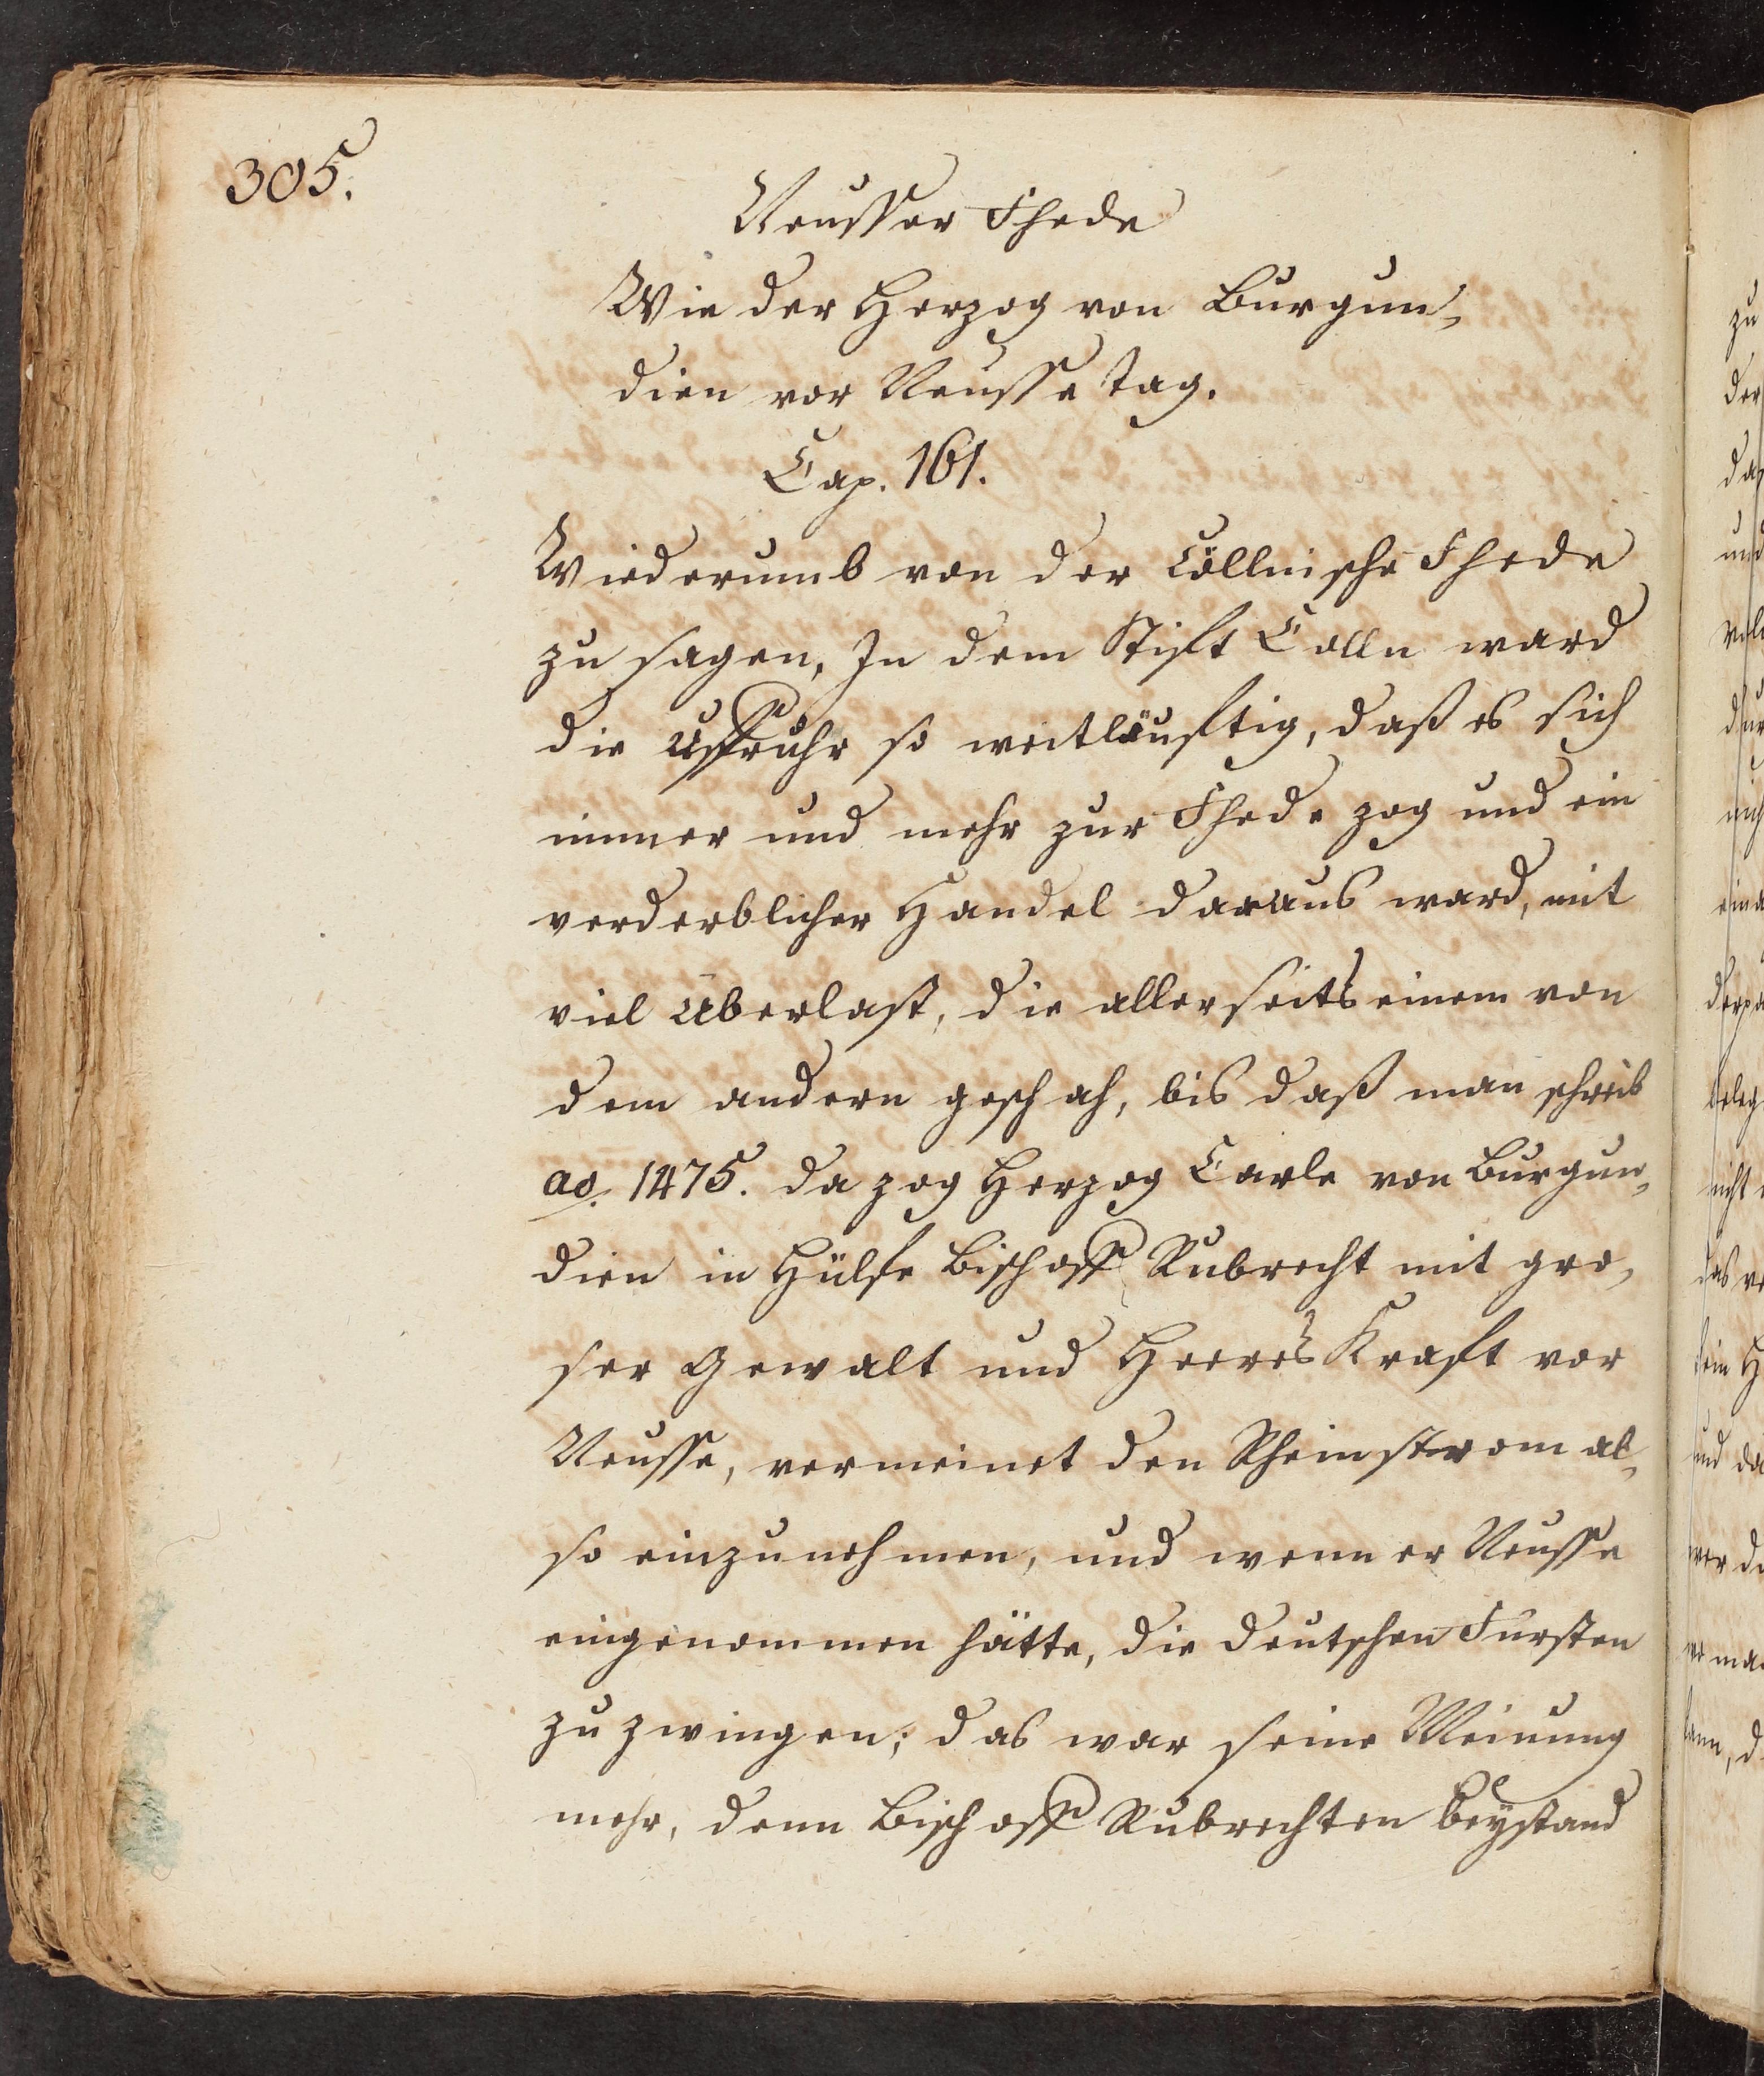 305.
Neusser Fhede
Wie der Herzog von Burgun,
dien vor Neusse tag.
Cap. 161.
Wiederumb von der Cöllnische Fhede
zu sagen, In dem Stift Colln ward
die uffruhr so weitläuftig, daß es sich
immer und mehr zur Fhede zog und ein
verderblicher Handel daraus ward, mit
viel Uberlast, die allerseits einem von
dem andern geschah, bis daß man schreib
ao. 1475. da zog Herzog Carle von Burgun,
dien in Hülfe Bischoff Rubrecht mit gro,
ser Gewalt und Heeres Kraft vor
Neusse, vermeinet den Rheinstrom al,
so einzunehmen, und wenn er Neusse
eingenommen hätte, die deutschen Fursten
zu zwingen; das war seine Meinung
mehr, denn Bischoff Rubrechten beystand